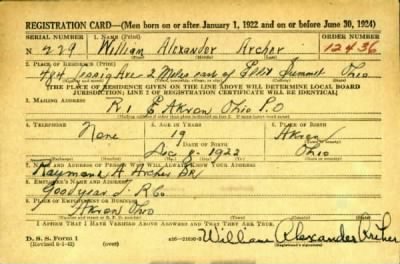 REGISTRATION CARD—(Men born on or after January 1, 1922 and on or before June 30, 1924)
SERIAL NUMBER 1. NAME (Print) ORDER NUMBER
N 229 William Alexander Archer 12436
(First) (Middle) (Last)
2. PLACE OF RESIDENCE (Print)
784 Ave 2 Miles east of Summit Ohio
[THE PLACE OF RESIDENCE GIVEN ON THE LINE ABOVE WILL DETERMINE LOCAL BOARD
JURISDICTION; LINE 2 OF REGISTRATION CERTIFICATE WILL BE IDENTICAL]
3. MAILING ADDRESS
R 1 E Akron Ohio P.O
4. TELEPHONE 5. AGE IN YEARS 6. PLACE OF BIRTH
None 19 Akron
DATE OF BIRTH
Dec 8 1922 Ohio
7. NAME AND ADDRESS OF PERSON WHO WILL ALWAYS KNOW YOUR ADDRESS
Raymond A Archer
8. EMPLOYER'S NAME AND ADDRESS
Goodyear T. R Co
9. PLACE OF EMPLOYMENT OR BUSINESS
Akron Ohio
I AFFIRM THAT I HAVE VERIFIED ABOVE ANSWERS AND THAT THEY ARE TRUE.
D. S. S. Form 1
(Revised 6-1-42) (over) William Alexander Archer
(Registrant's signature)